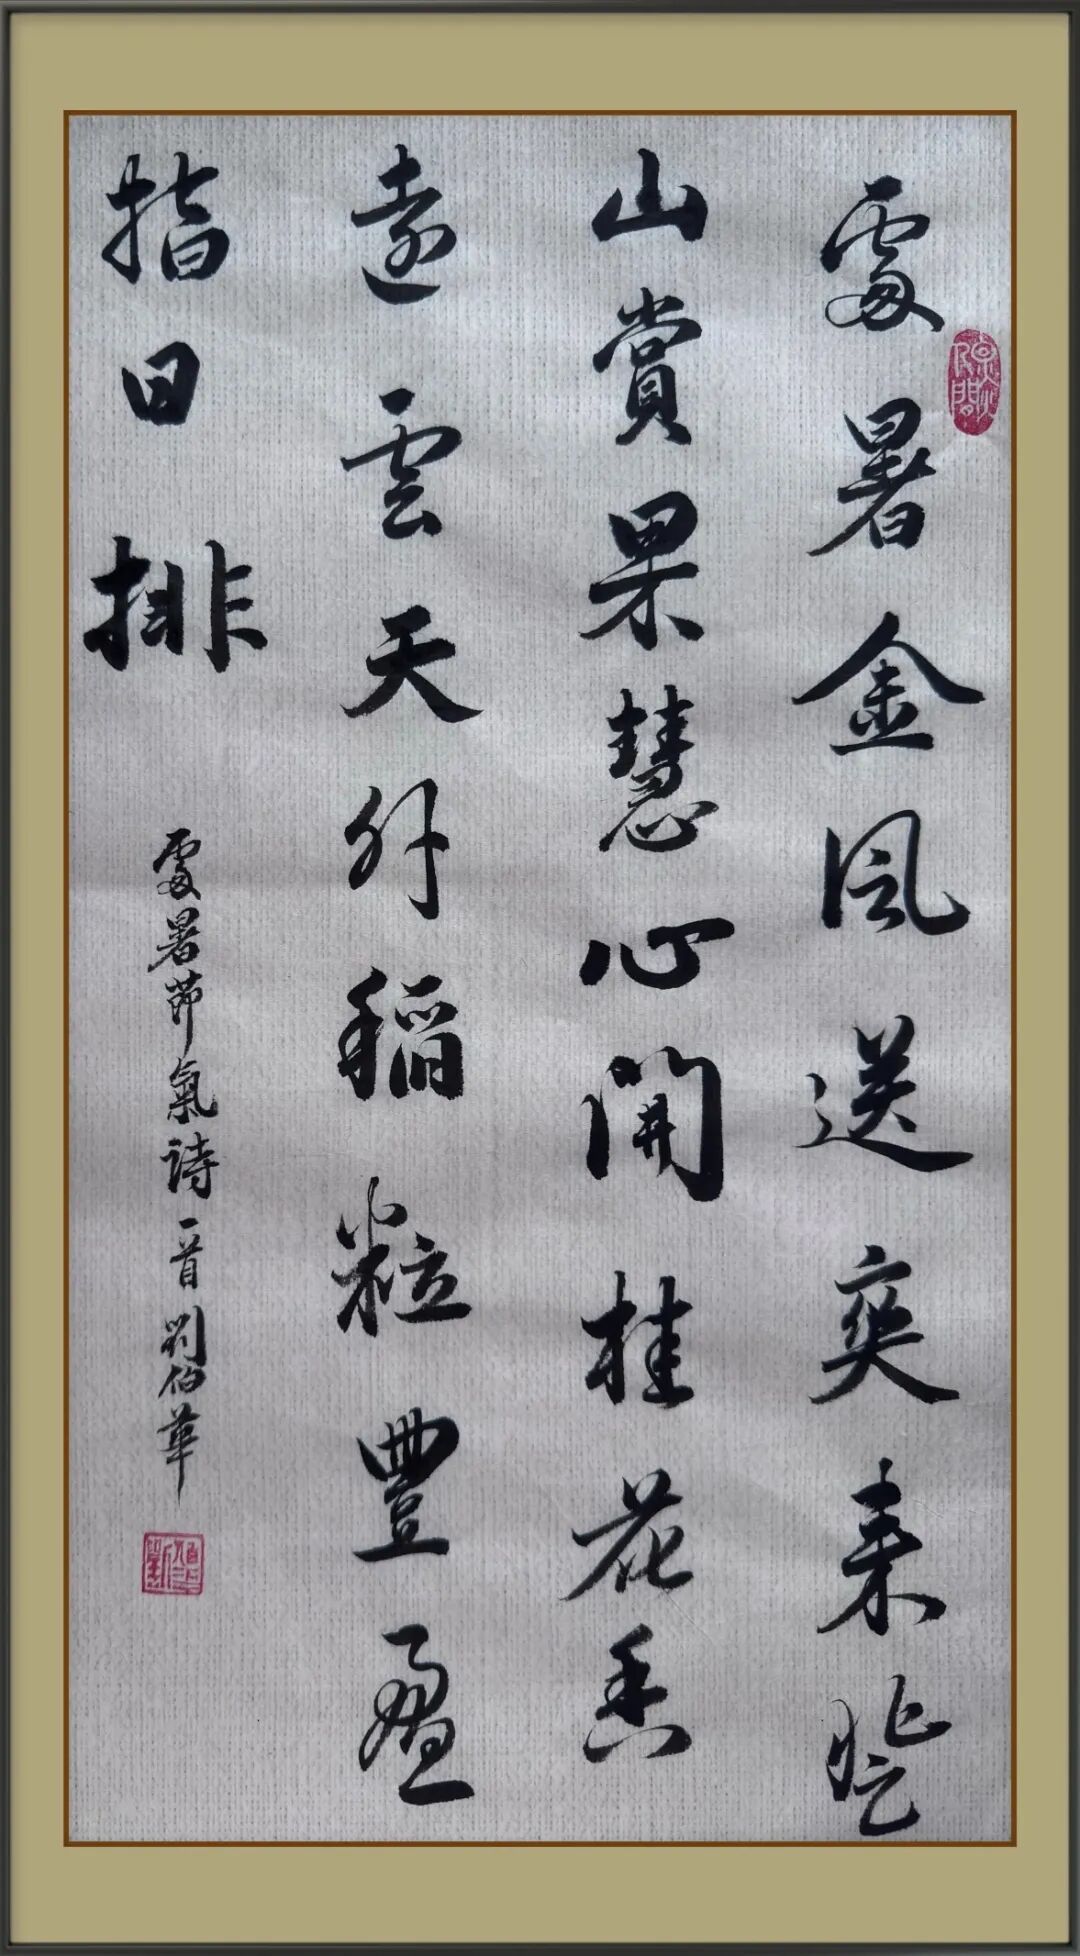 處暑金風送爽来登
山賞果慧心開桂花香
遠雲天外稻粒豐盈
指日排
處暑節氣詩一首劉伯華